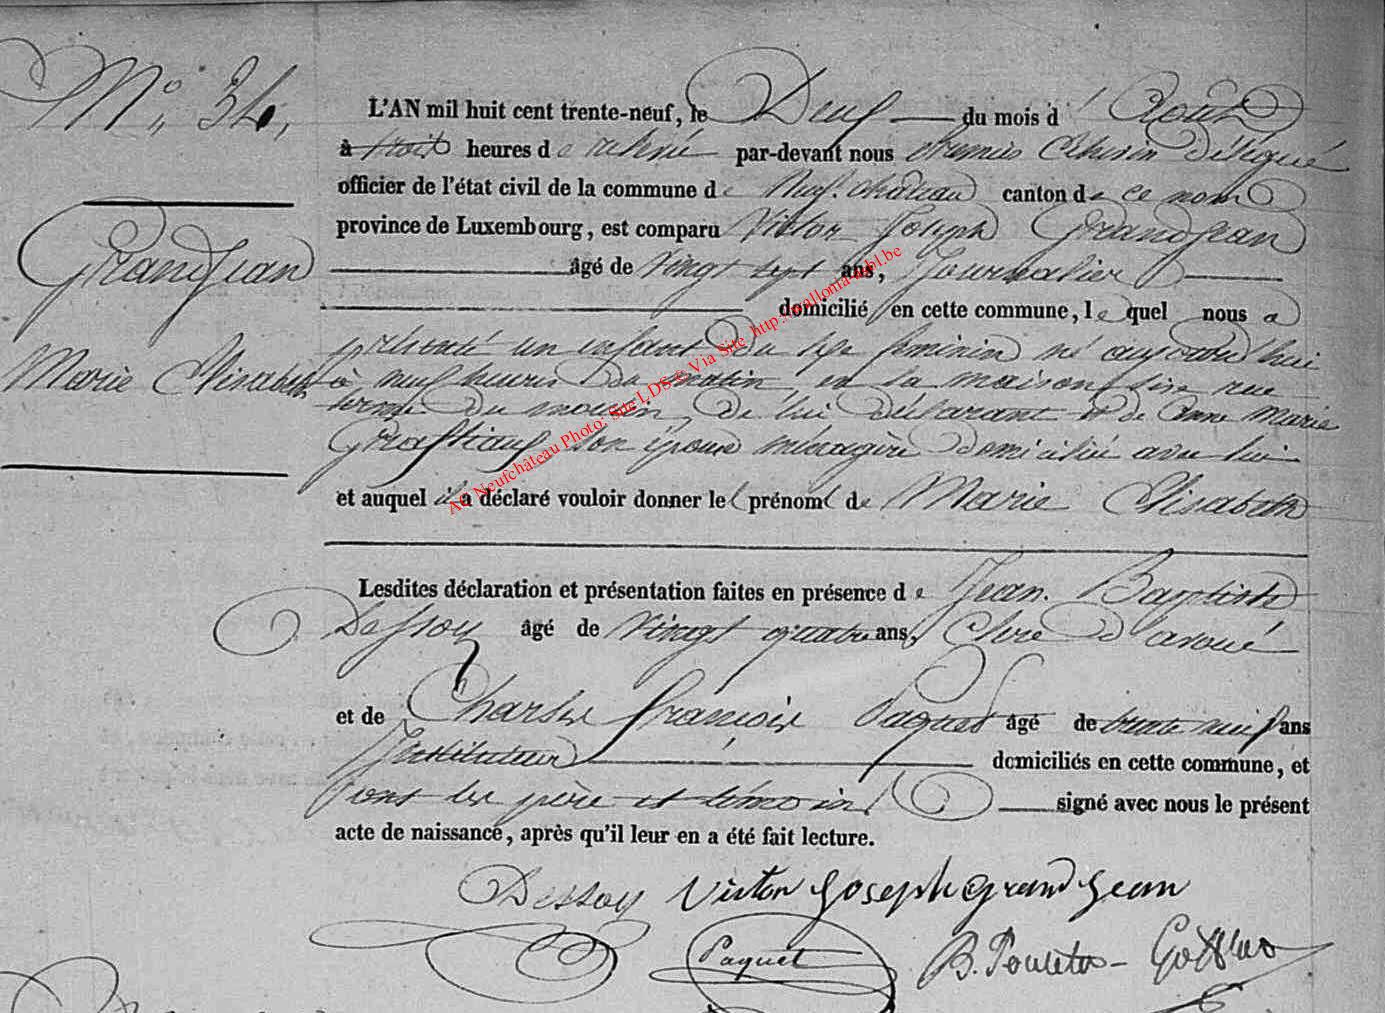 N°. 34.
L'AN mil huit cent trente-neuf, le Deux du mois d'Août
à trois heures de relevé par-devant nous Premier Echevin Délégué
officier de l'état civil de la commune de Neufchateau canton de ce nom
province de Luxembourg, est comparu Victor Joseph GrandJean
GrandJean
âgé de vingt sept ans, Journalier
domicilié en cette commune, lequel nous a
présenté un enfant du sexe feminin né aujourd'hui
Marie Elisabeth
à neuf heures du matin, en la maison sise rue
du moulin, de lui déclarant et de Anne Marie
son épouse ménagère domiciliée avec lui
et auquel il a déclaré vouloir donner le prénom de Marie Elisabeth
Lesdites déclaration et présentation faites en présence de Jean Baptiste
Dessoy âgé de vingt quatre ans, Clerc d'avoué
et de Charles François Paquet âgé de trente neuf ans
Instituteur domiciliés en cette commune, et
ont les père et témoins signé avec nous le présent
acte de naissance, après qu'il leur en a été fait lecture.
Dessoy Victor Joseph grandJean
Paquet
AC Neufchâteau Photo: Site LDS © Via Site http://wallonia-asbl.be